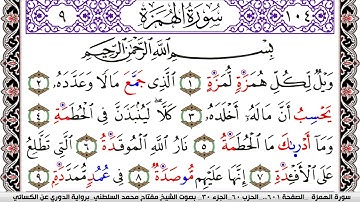 ١٠٤ سُورَةُ الْهُمَزَةِ ٩
بِسْمِ اللَّهِ الرَّحْمَٰنِ الرَّحِيمِ
وَيْلٌ لِّكُلِّ هُمَزَةٍ لُّمَزَةٍ ١ الَّذِى جَمَّعَ مَالًا وَعَدَّدَهُۥ ٢
يَحْسِبُ أَنَّ مَالَهُۥٓ أَخْلَدَهُۥ ٣ كَلَّا لَيُنۢبَذَنَّ فِى الْحُطَمَةِ ٤
وَمَآ أَدْرِىٰكَ مَا الْحُطَمَةُ ٥ نَارُ اللَّهِ الْمُوقَدَةُ ٦ الَّتِى تَطَّلِعُ
عَلَى الْأَفْـِٔدَةِ ٧ إِنَّهَا عَلَيْهِم مُّوصَدَةٌ ٨ فِى عُمُدٍ مُّمَدَّدَةٍ ٩
سورة الهمزة الصفحة ٦٠١... الحزب ٦٠ الجزء ٣٠ بصوت الشيخ مفتاح محمد السلطني برواية الدوري عن الكسائي